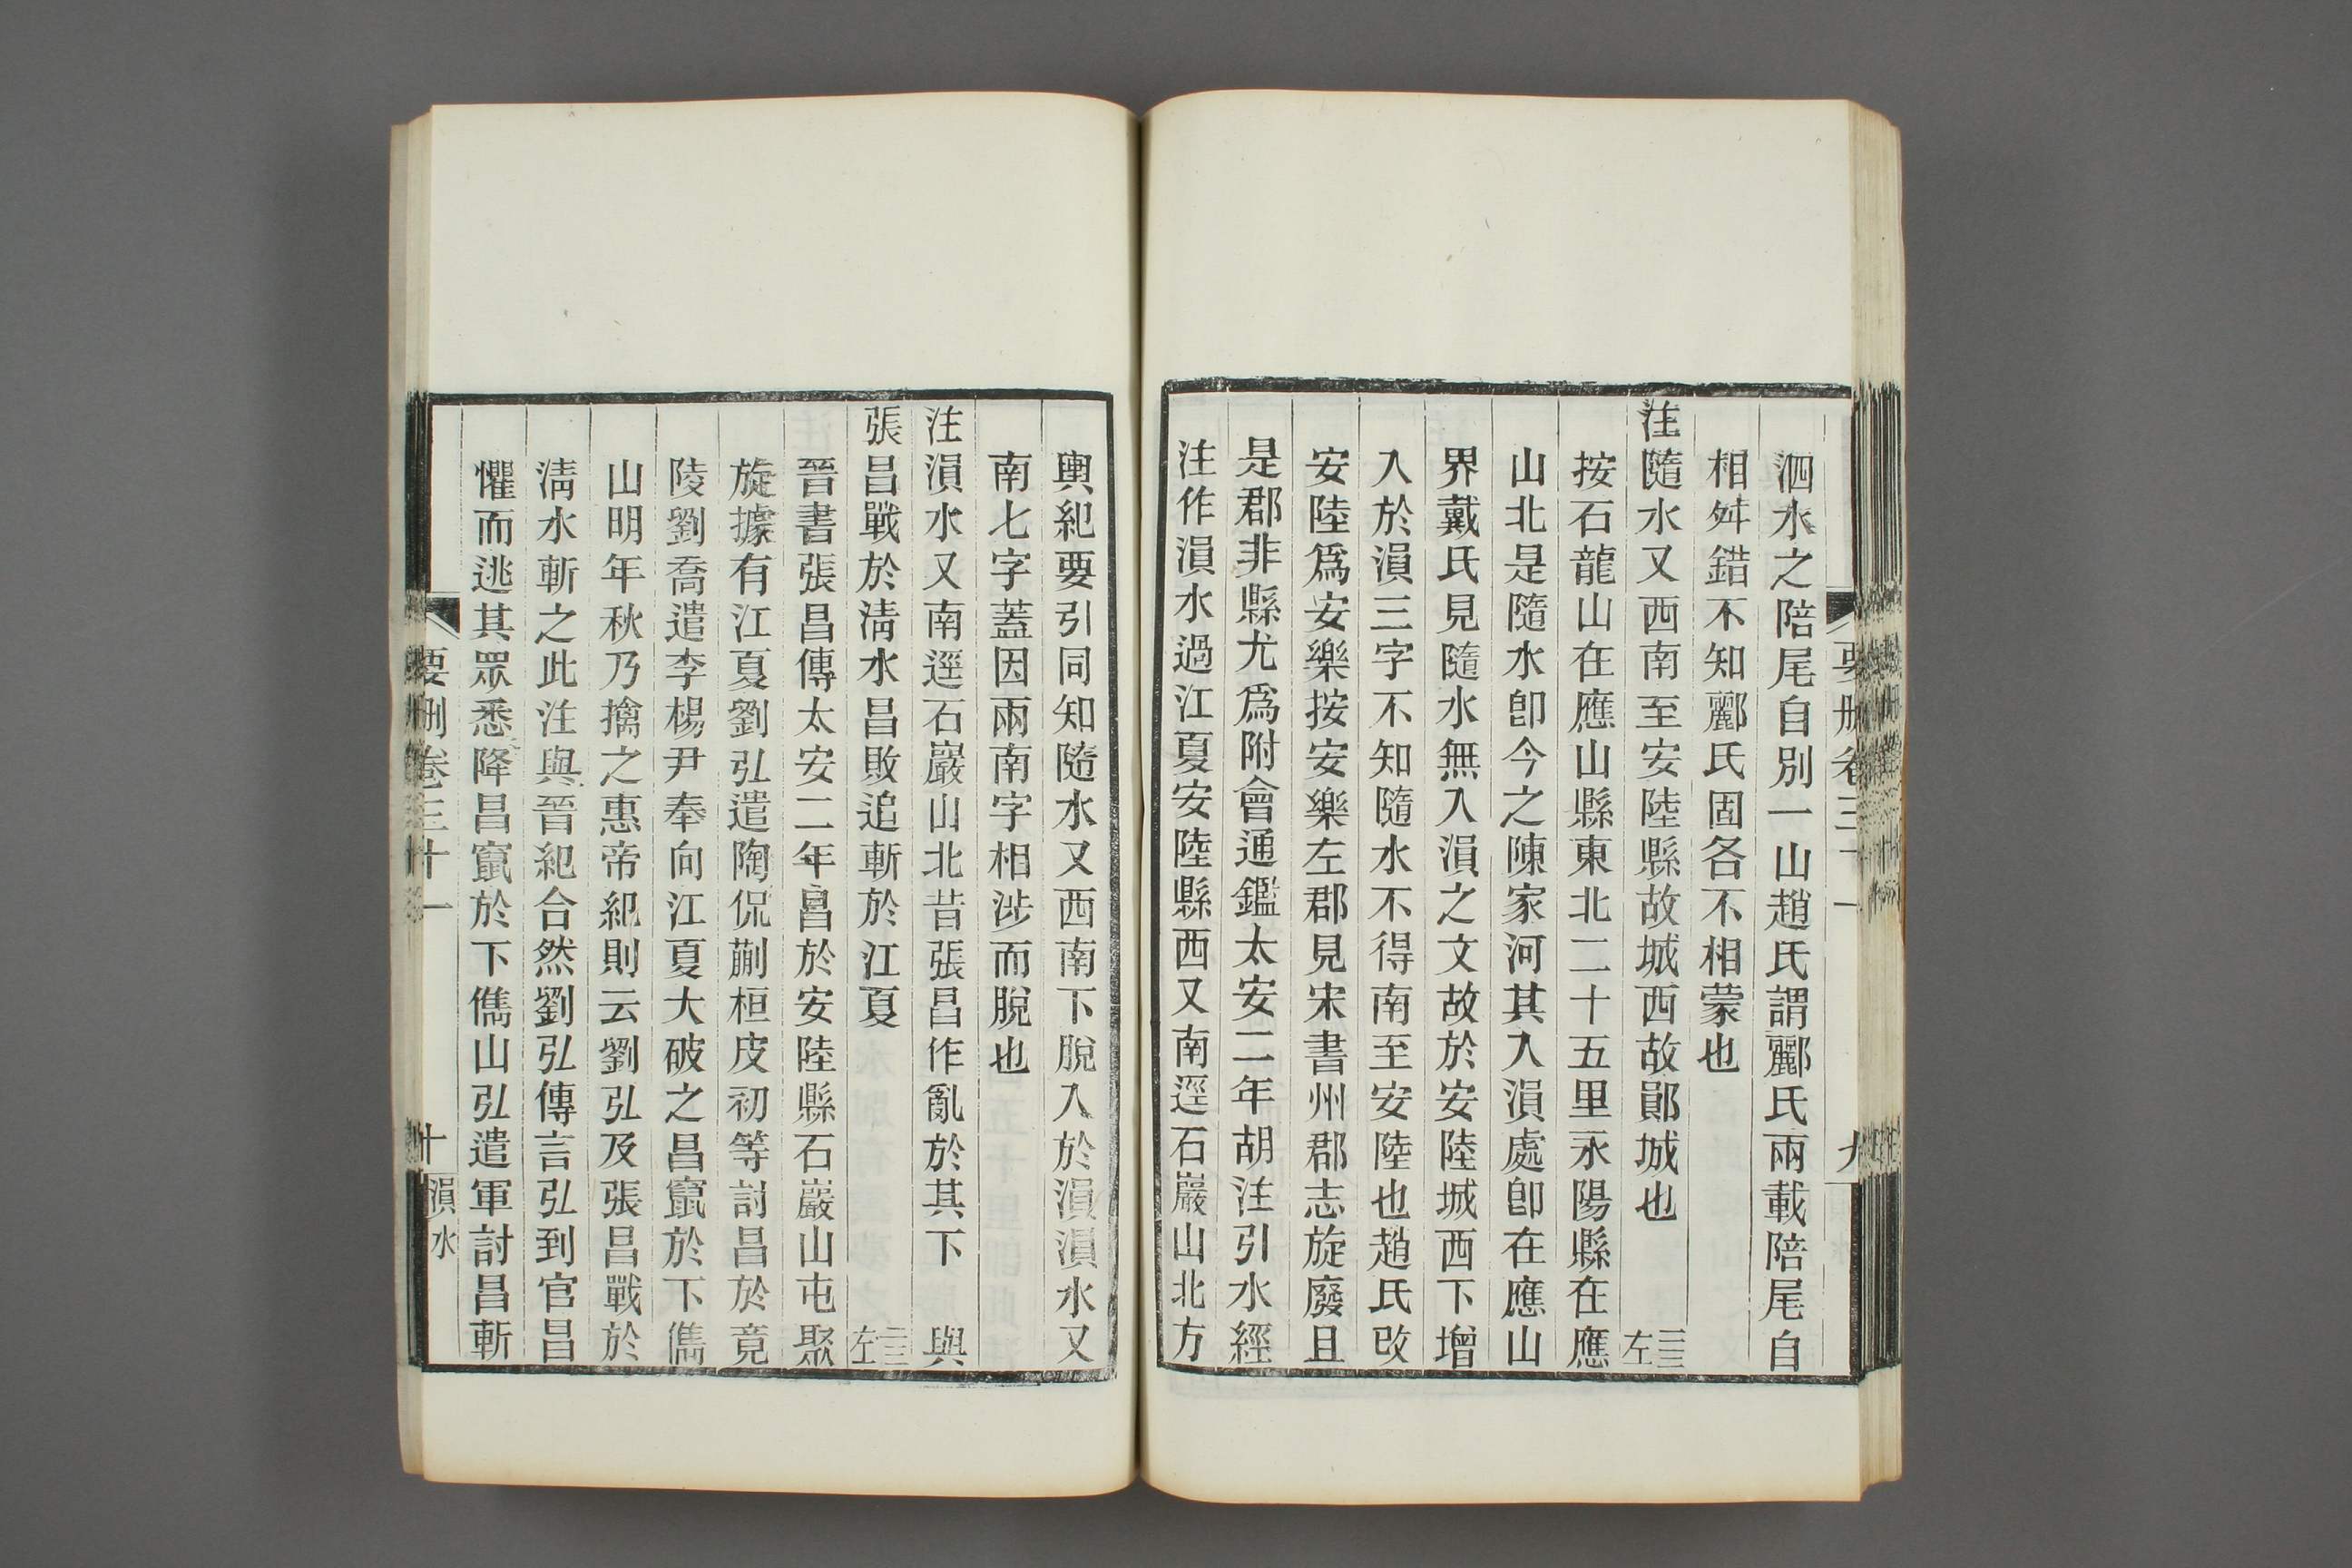 要刪卷三十一
九
泗水之陪尾自別一山趙氏謂酈氏兩載陪尾自
相舛錯不知酈氏固各不相蒙也
注隨水又西南至安陸縣故城西故鄖城也 三三左
按石龍山在應山縣東北二十五里永陽縣在應
山北是隨水卽今之陳家河其入溳處卽在應山
界戴氏見隨水無入溳之文故於安陸城西下增
入於溳三字不知隨水不得南至安陸也趙氏改
安陸爲安樂按安樂左郡見宋書州郡志旋廢且
是郡非縣尤爲附會通鑑太安二年胡注引水經
注作溳水過江夏安陸縣西又南逕石巖山北方
輿紀要引同知隨水又西南下脫入於溳溳水又
南七字蓋因兩南字相涉而脫也
注溳水又南逕石巖山北昔張昌作亂於其下 與
張昌戰於淸水昌敗追斬於江夏 三三左
晉書張昌傳太安二年昌於安陸縣石巖山屯聚
旋據有江夏劉弘遣陶侃蒯桓皮初等討昌於竟
陵劉喬遣李楊尹奉向江夏大破之昌竄於下儁
山明年秋乃擒之惠帝紀則云劉弘及張昌戰於
淸水斬之此注與晉紀合然劉弘傳言弘到官昌
懼而逃其眾悉降昌竄於下儁山弘遣軍討昌斬
要刪卷三十一
十
溳水